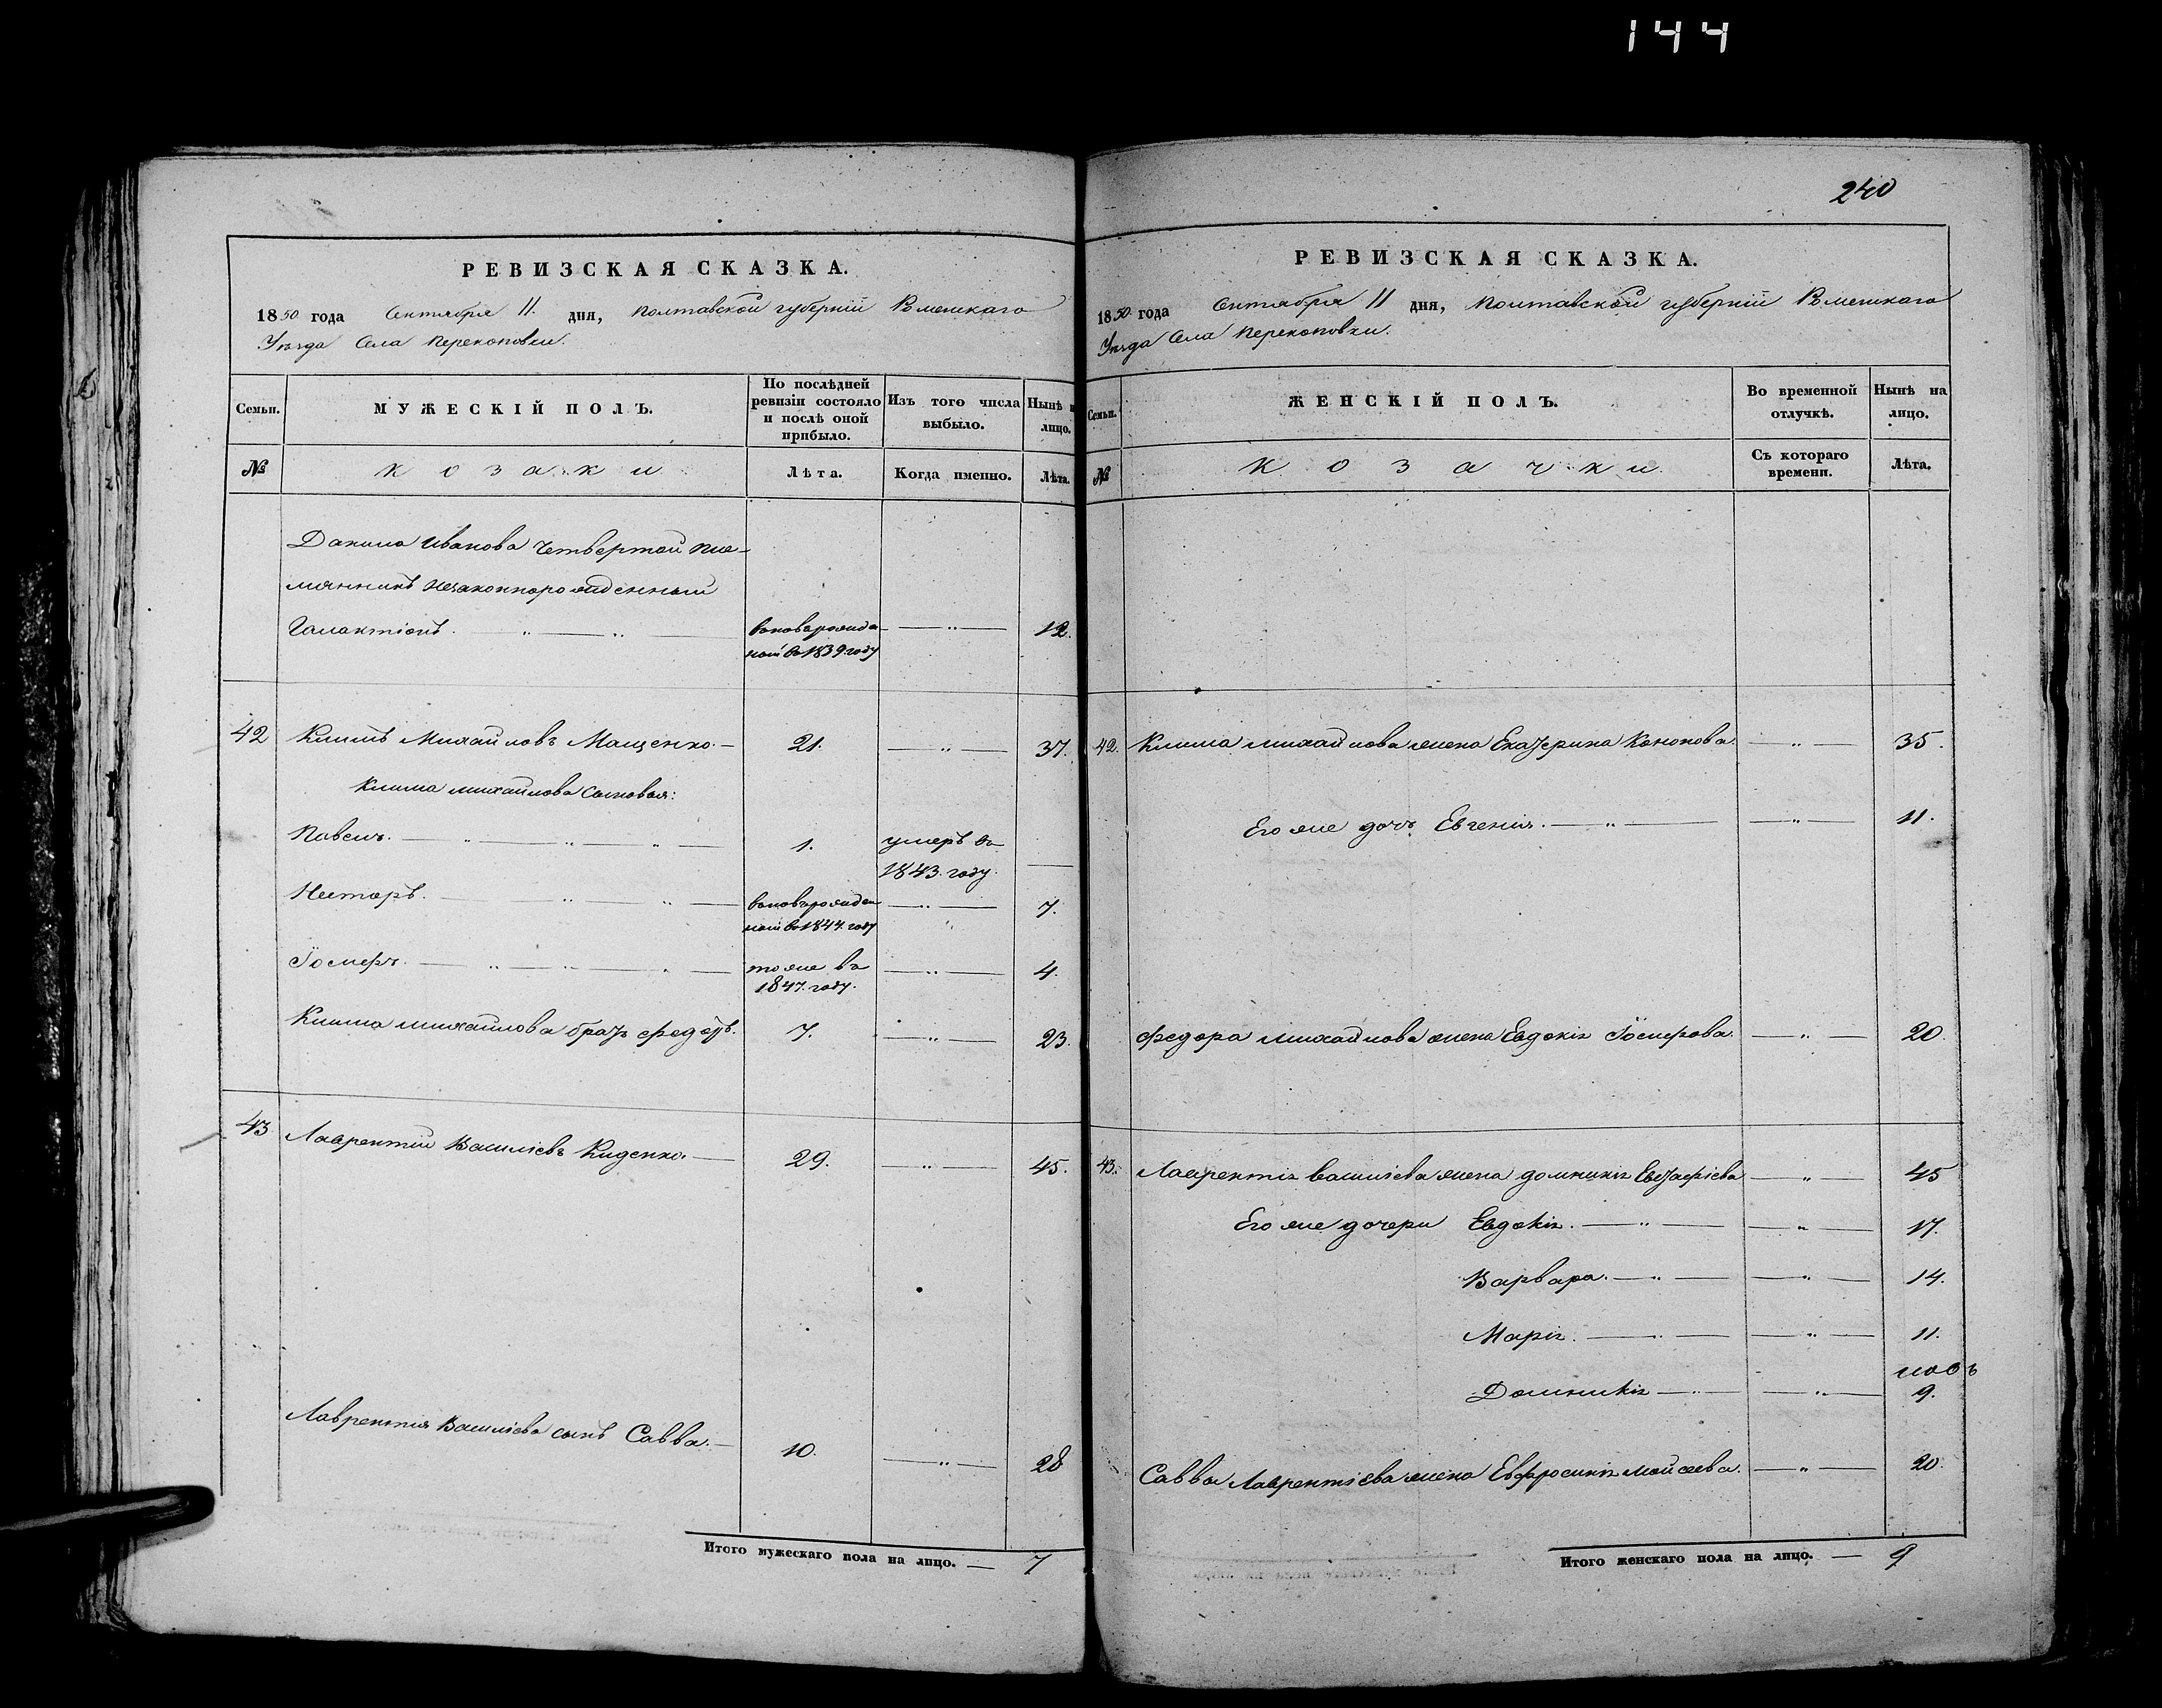 144
РЕВИЗСКАЯ СКАЗКА.
1850 года Сентября 11. дня, Полтавской губерній Роменскаго
Уезда Села Перекоповки.
Семьи.
МУЖЕСКІЙ ПОЛЪ.
По послѣдней ревизіи состояло и послѣ оной прибыло.
Изъ того числа выбыло.
Нынѣ н лицо.
№
Козаки
Лѣта.
Когда именно.
Лѣта.
Данила Иванова четвертой пле-
мянникъ Незаконнорожденный
Галактіонъ. вновьрожде
ной въ 1839. году 12.
42 Климъ Михайловъ Мащенко. 21. 37.
Клима Михайлова сыновья:
Павелъ. 1. умеръ въ
1843. году.
Несторъ. вновьрожден
ной въ 1844. году 7.
Іосифъ. тоже въ 4.
1847. году.
Клима Михайлова братъ Федоръ. 7. 23.
43 Лаврентій Василіевъ Киденко. 29. 45.
Лаврентія Василіева сынъ Савва. 10. 28
Итого мужескаго пола на лицо. 7
240
РЕВИЗСКАЯ СКАЗКА.
1850 года Сентября 11 дня, Полтавской губерній Роменскаго
Уезда Села Перекоповки.
Семьи.
ЖЕНСКІЙ ПОЛЪ.
Во временной отлучкѣ.
Нынѣ на лицо.
№
Козачки.
Съ котораго времени.
Лѣта.
42. Клима Михайлова жена Екатерина Кононова. 35.
Его же дочь Евгенія. 11.
Федора Михайлова жена Евдокія Іосифова. 20.
43. Лаврентія Василіева жена Домникія Евстафіева 45
Его же дочери Евдокія. 17.
Варвара. 14.
Марія. 11.
новъ
Домникія 9.
Саввы Лаврентіева жена Евфросинія Мойсеева. 20.
Итого женскаго пола на лицо. 9